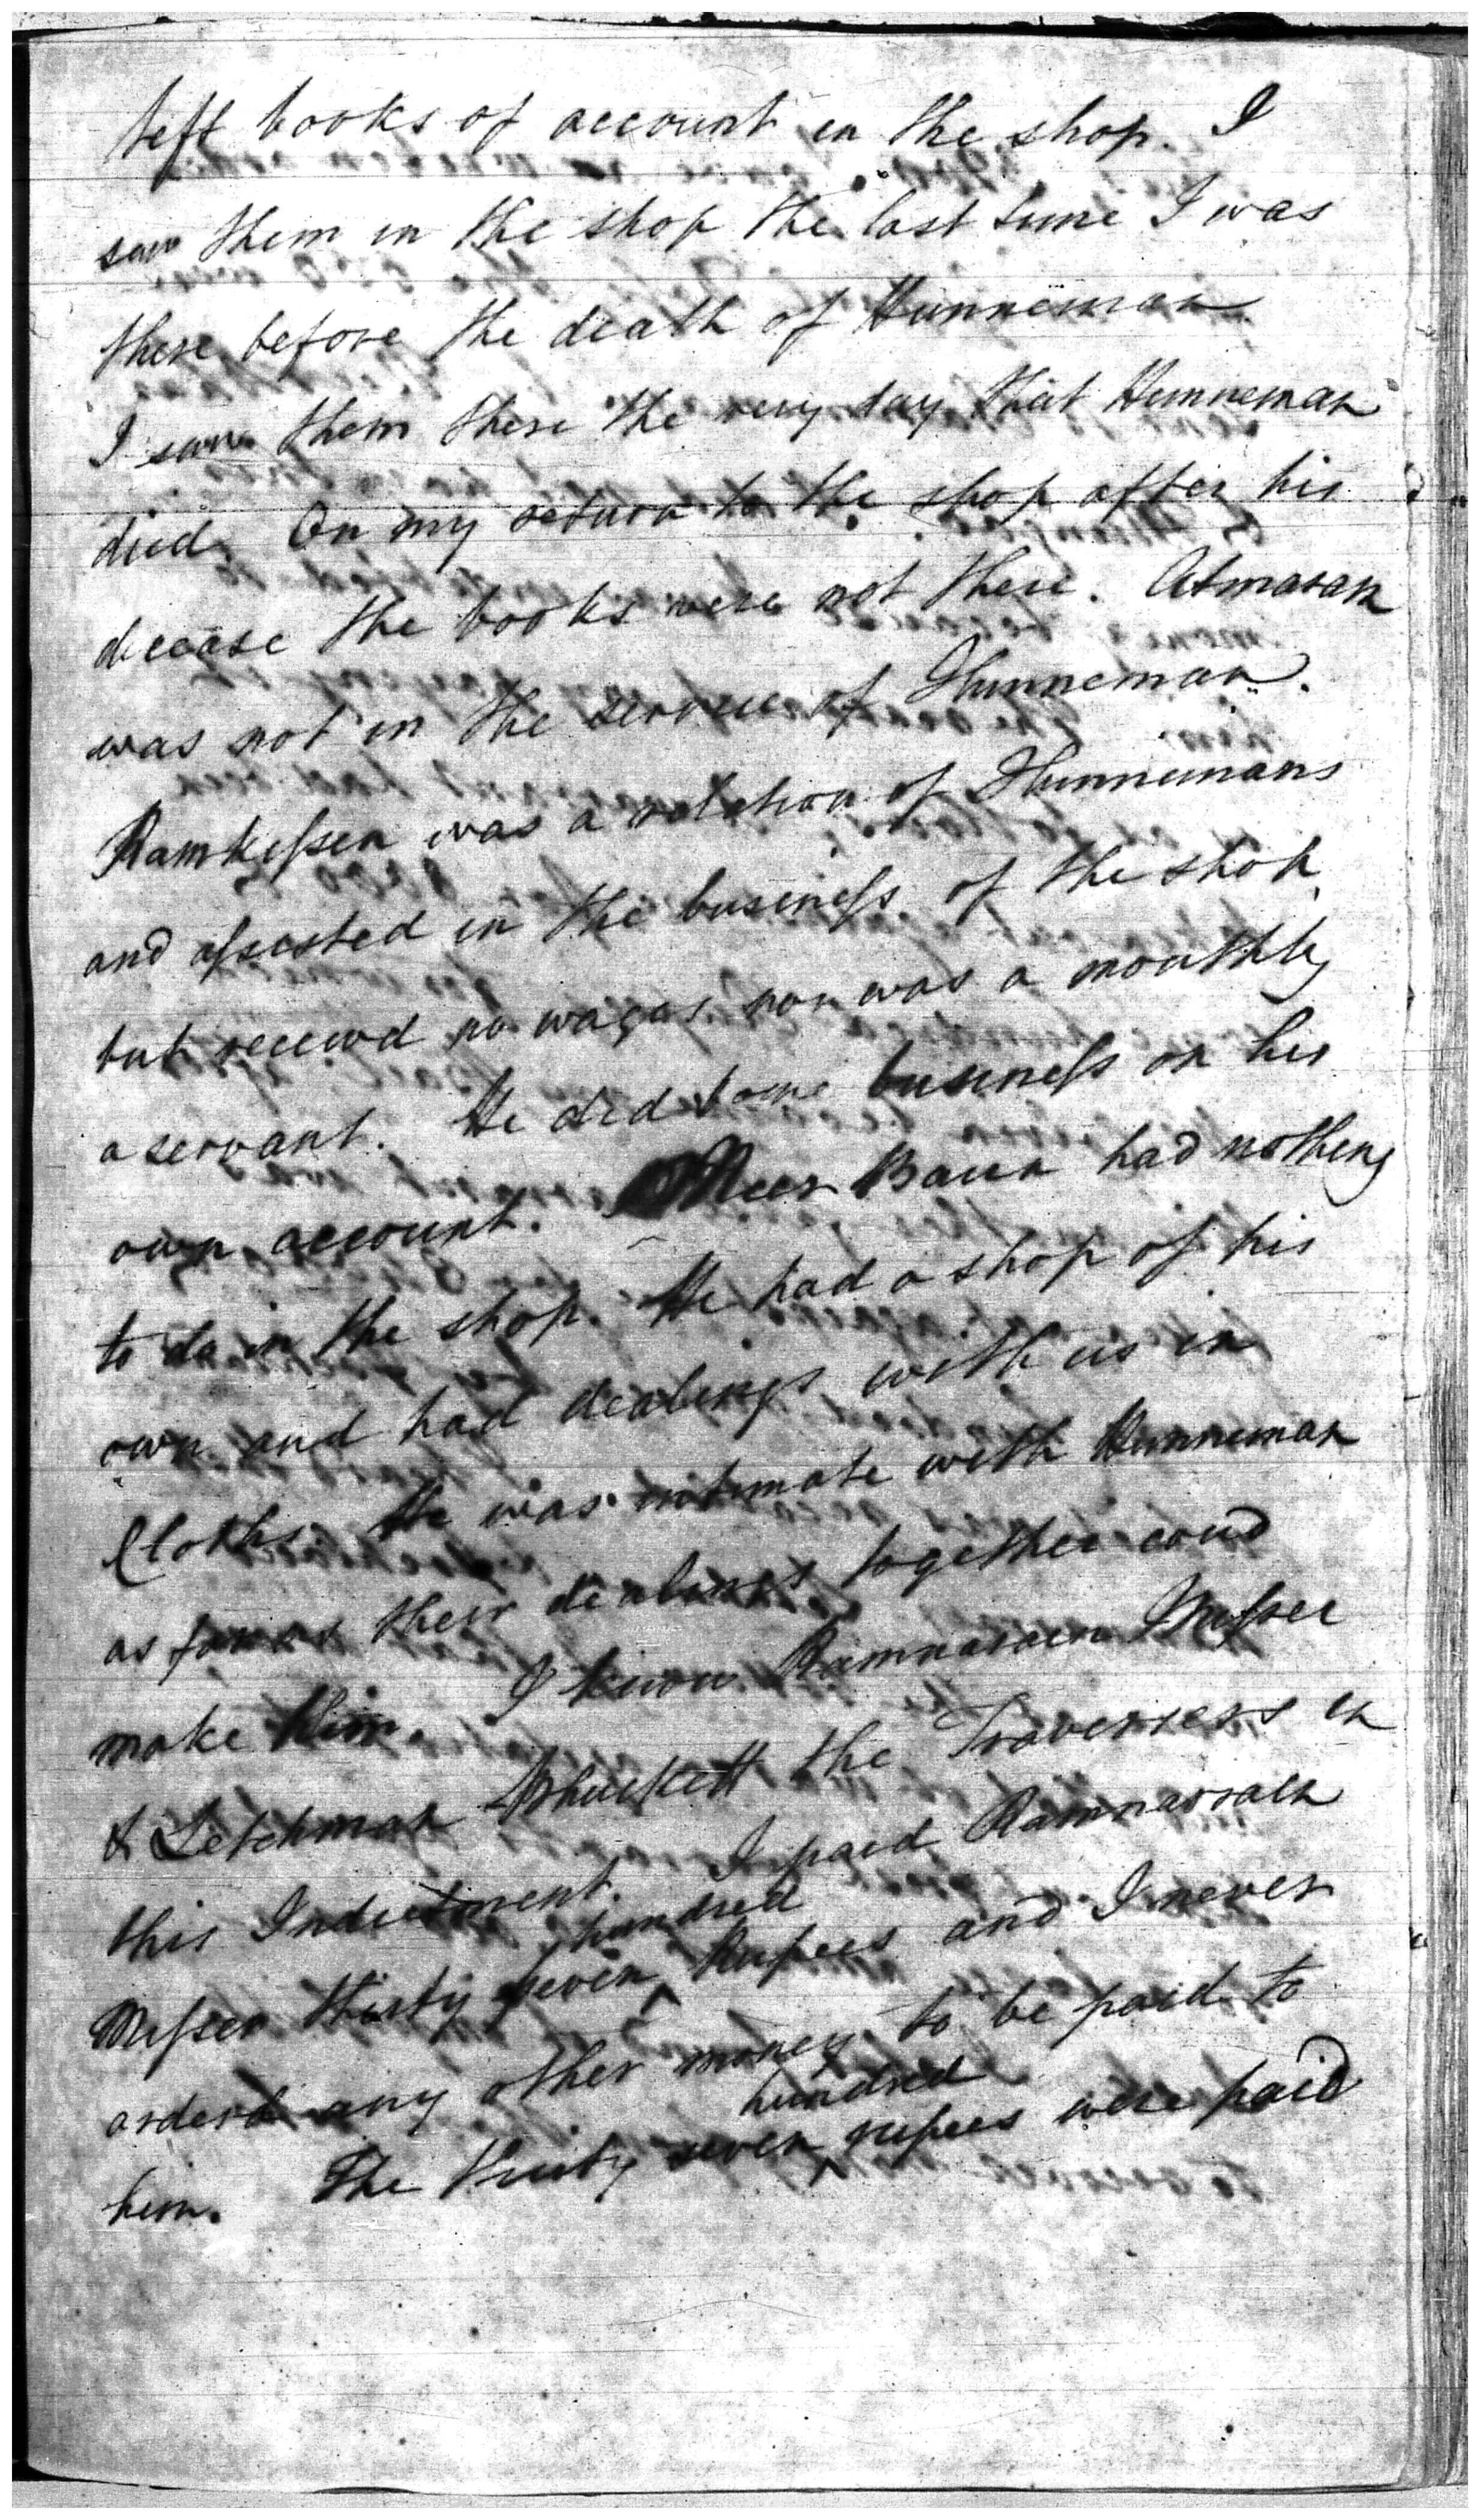 left books of account in the shop. I
saw them in the shop the last time I was
there before the death of Hunneman
I saw them there the very day that Hunneman
died. On my return to the shop after his
decease the books were not there. Atmaram
was not in the service of Hunneman.
Ramkissen was a relation of Hunnemans
and assisted in the business of the shop
but receivd no wages nor was a monthly
a servant. He did some business on his
own account. Baun had nothing
to do in the shop. He had a shop of his
own and had dealings with us in
Cloths. He was intimate with Hunneman
as far as their dealings together coud
make him. I know Ramnarain Misser
& Letchman the Traversers in
this Indictment. I paid Ramnarrain
Misser thirty seven hundred Rupees and I never
orderd any other money to be paid to
him. The thirty seven hundred rupees were paid